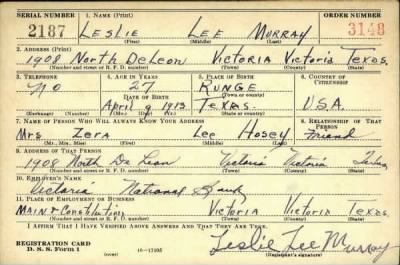 SERIAL NUMBER 1. NAME (Print) ORDER NUMBER
2187 LESLIE LEE MURRAY 3148
(First) (Middle) (Last)
2. ADDRESS (Print)
1908 North DeLeon Victoria Victoria Texas.
(Number and street or R. F. D. number) (Town) (County) (State)
3. TELEPHONE 4. AGE IN YEARS 5. PLACE OF BIRTH 6. COUNTRY OF CITIZENSHIP
No 27 RUNGE
DATE OF BIRTH (Town or county)
April 9 1913 Texas. U.S.A.
(Exchange) (Number) (Mo.) (Day) (Yr.) (State or country)
7. NAME OF PERSON WHO WILL ALWAYS KNOW YOUR ADDRESS 8. RELATIONSHIP OF THAT PERSON
Mrs Zera Lee Hosey Friend
(Mr., Mrs., Miss) (First) (Middle) (Last)
9. ADDRESS OF THAT PERSON
1908 North De Leon Victoria Victoria Texas
(Number and street or R. F. D. number) (Town) (County) (State)
10. EMPLOYER'S NAME
Victoria National Bank
11. PLACE OF EMPLOYMENT OR BUSINESS
MAIN & Constitution Victoria Victoria Texas.
(Number and street or R. F. D. number) (Town) (County) (State)
I AFFIRM THAT I HAVE VERIFIED ABOVE ANSWERS AND THAT THEY ARE TRUE.
REGISTRATION CARD
D. S. S. Form 1 (over) 16—17105 Leslie Lee Murray
(Registrant's signature)